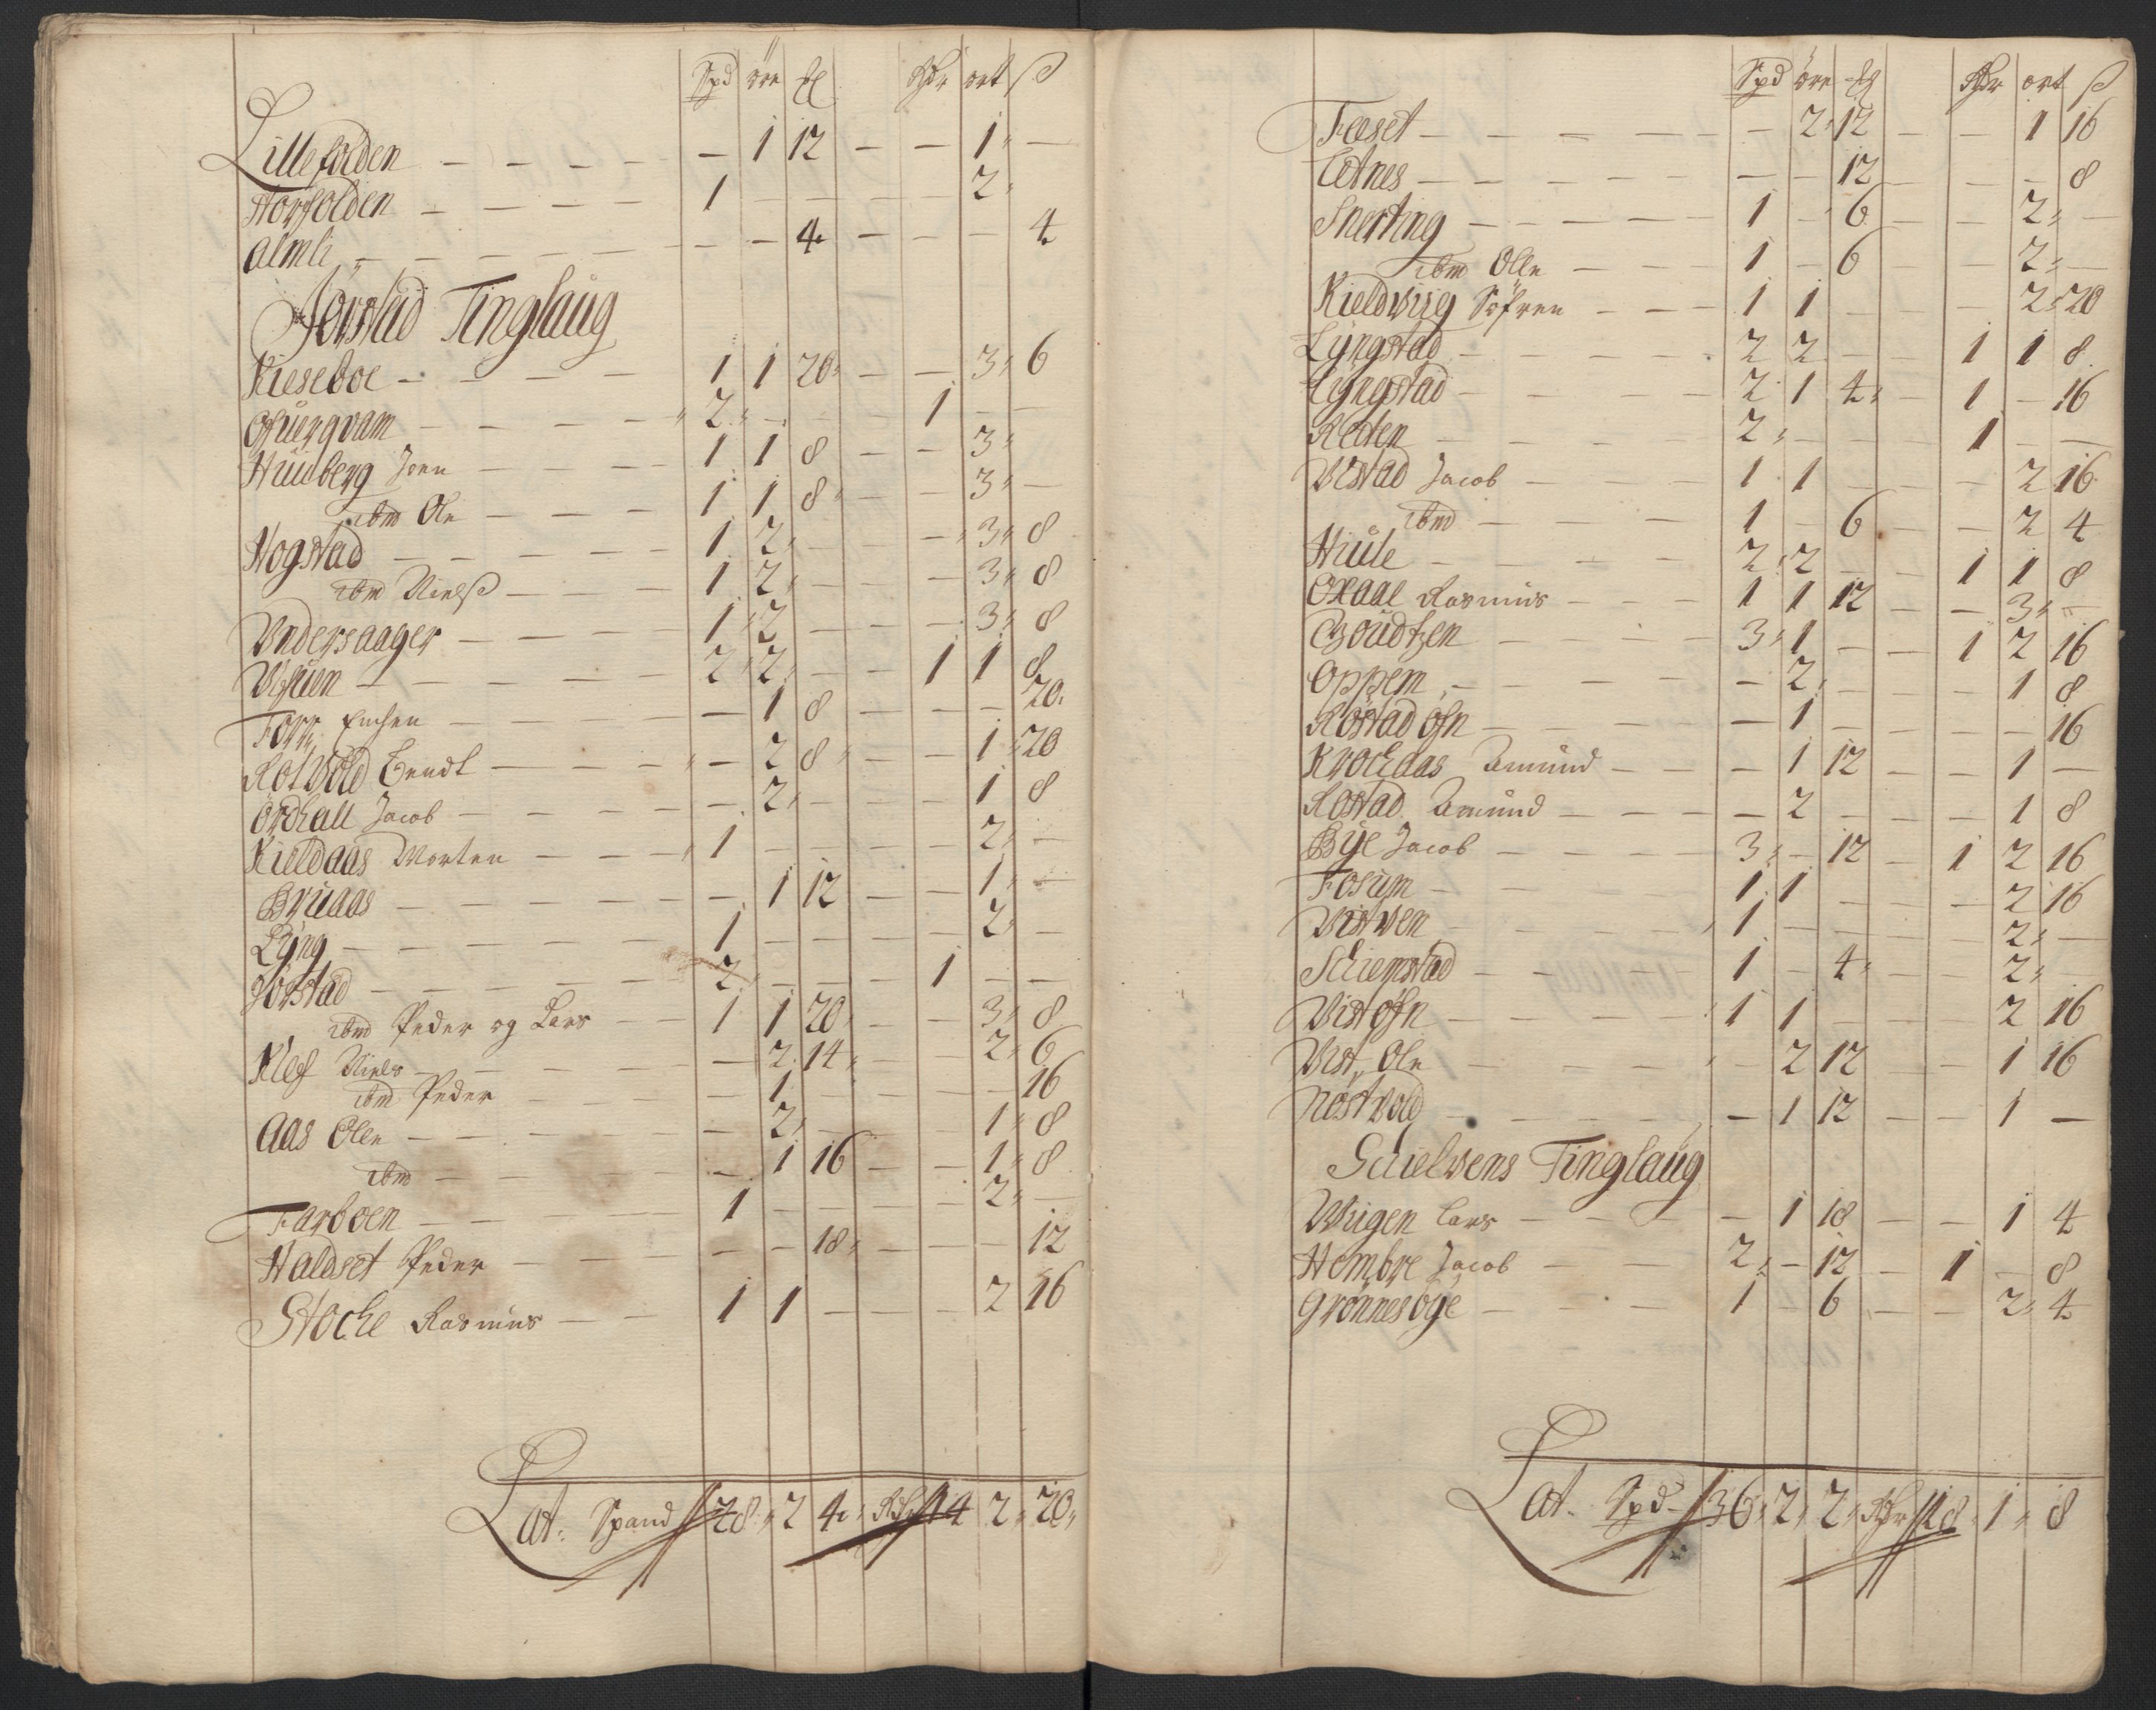 Spd öre ℔ Rdr ort ß
Lillefolden — — — — — 1 12 — — 1 —
Storfolden — — — — 1 — — — — 2
Almli — — — — — — — 4 — — — 4
Jörstad Tinglaug
Kieseboe — — — — 1 1 20 — — 3 6
Ofuerqvam — — — — 2 — — — 1 — —
Huuberg Joen — — — — 1 1 8 — — 3
ibm Ole — — — — 1 1 8 — — 3 —
Hogstad — — — — 1 2 — — — 3 8
ibm Nielß — — — — 1 2 — — — 3 8
Undersaager — — — — 1 2 — — — 3 8
Vifuen — — — — 2 2 — — 1 1 8
Forr Enchen — — — — — 1 8 — — — 20
Rotvold Bendt — — — — — 2 8 — — 1 20
Ördhall Jacob — — — — — 2 — — — 1 8
Kieldaas Morten — — — 1 — — — — 2 —
Bruaas — — — — — 1 12 — — 1 —
Lÿng — — — — 1 — — — — 2 —
Jörstad — — — — 2 — — — 1 — —
ibm Peder og Lars — — 1 1 20 — — 3 8
Klef Niels — — — — — 2 14 — — 2 6
ibm Peder — — — — — 1 — — — — 16
Aas Olle — — — — — 2 — — — 1 8
ibm — — — — 1 16 — — 1 8
Farboen — — — — 1 — — — — 2 —
Haldset Peder — — — — — 18 — — — 12
Stoche Rasmus — — 1 1 — — — 2 16
Lat. Spand 28 2 4 Rdr 14 2 20
Spd öre ℔ Rdr ort ß
Fæset — — — — — 2 12 — — 1 16
Lotnes — — — — — — 12 — — — 8
Snerting — — — — 1 — 6 — — 2 —
ibm Olle — — — 1 — 6 — — 2 —
Kieldwiig Söfren — — — 1 1 — — — 2 20
Lÿngstad — — — — 2 2 — — 1 1 8
Lÿngstad — — — — 2 1 4 — 1 — 16
Reden — — — — 2 — — — 1 — —
Wistad Jacob — — — 1 1 — — — 2 16
ibm — — — — 1 — 6 — — 2 4
Hiule — — — — 2 2 — — 1 1 8
Oxaal Rasmus — — — 1 1 12 — — 3 —
Boudtzen — — — — 3 1 — — 1 2 16
Oppem — — — — — 2 — — — 1 8
Röstad ofn — — — — — 1 — — — — 16
Krochaas Amund — — — — 1 12 — — 1 —
Rostad Amund — — — — 2 — — — 1 8
Bÿe Jacob — — — — 3 — 12 — 1 2 16
Fosum — — — — 1 1 — — — 2 16
Wistwen — — — — 1 — — — — 2 —
Schiemstad — — — — 1 — 4 — — 2
Wist ofn — — — — 1 1 — — — 2 16
Wist Ole — — — — — 2 12 — — 1 16
Nöstvold — — — — — 1 12 — — 1 —
Schielvens Tinglaug
Wiigen Lars — — — — 1 18 — — 1 4
Hembre Jacob — — — 2 — 12 — 1 — 8
Grönnesöÿe — — — 1 — 6 — — 2 4
Lat. Spd 36 2 2 Rdr 18 1 8